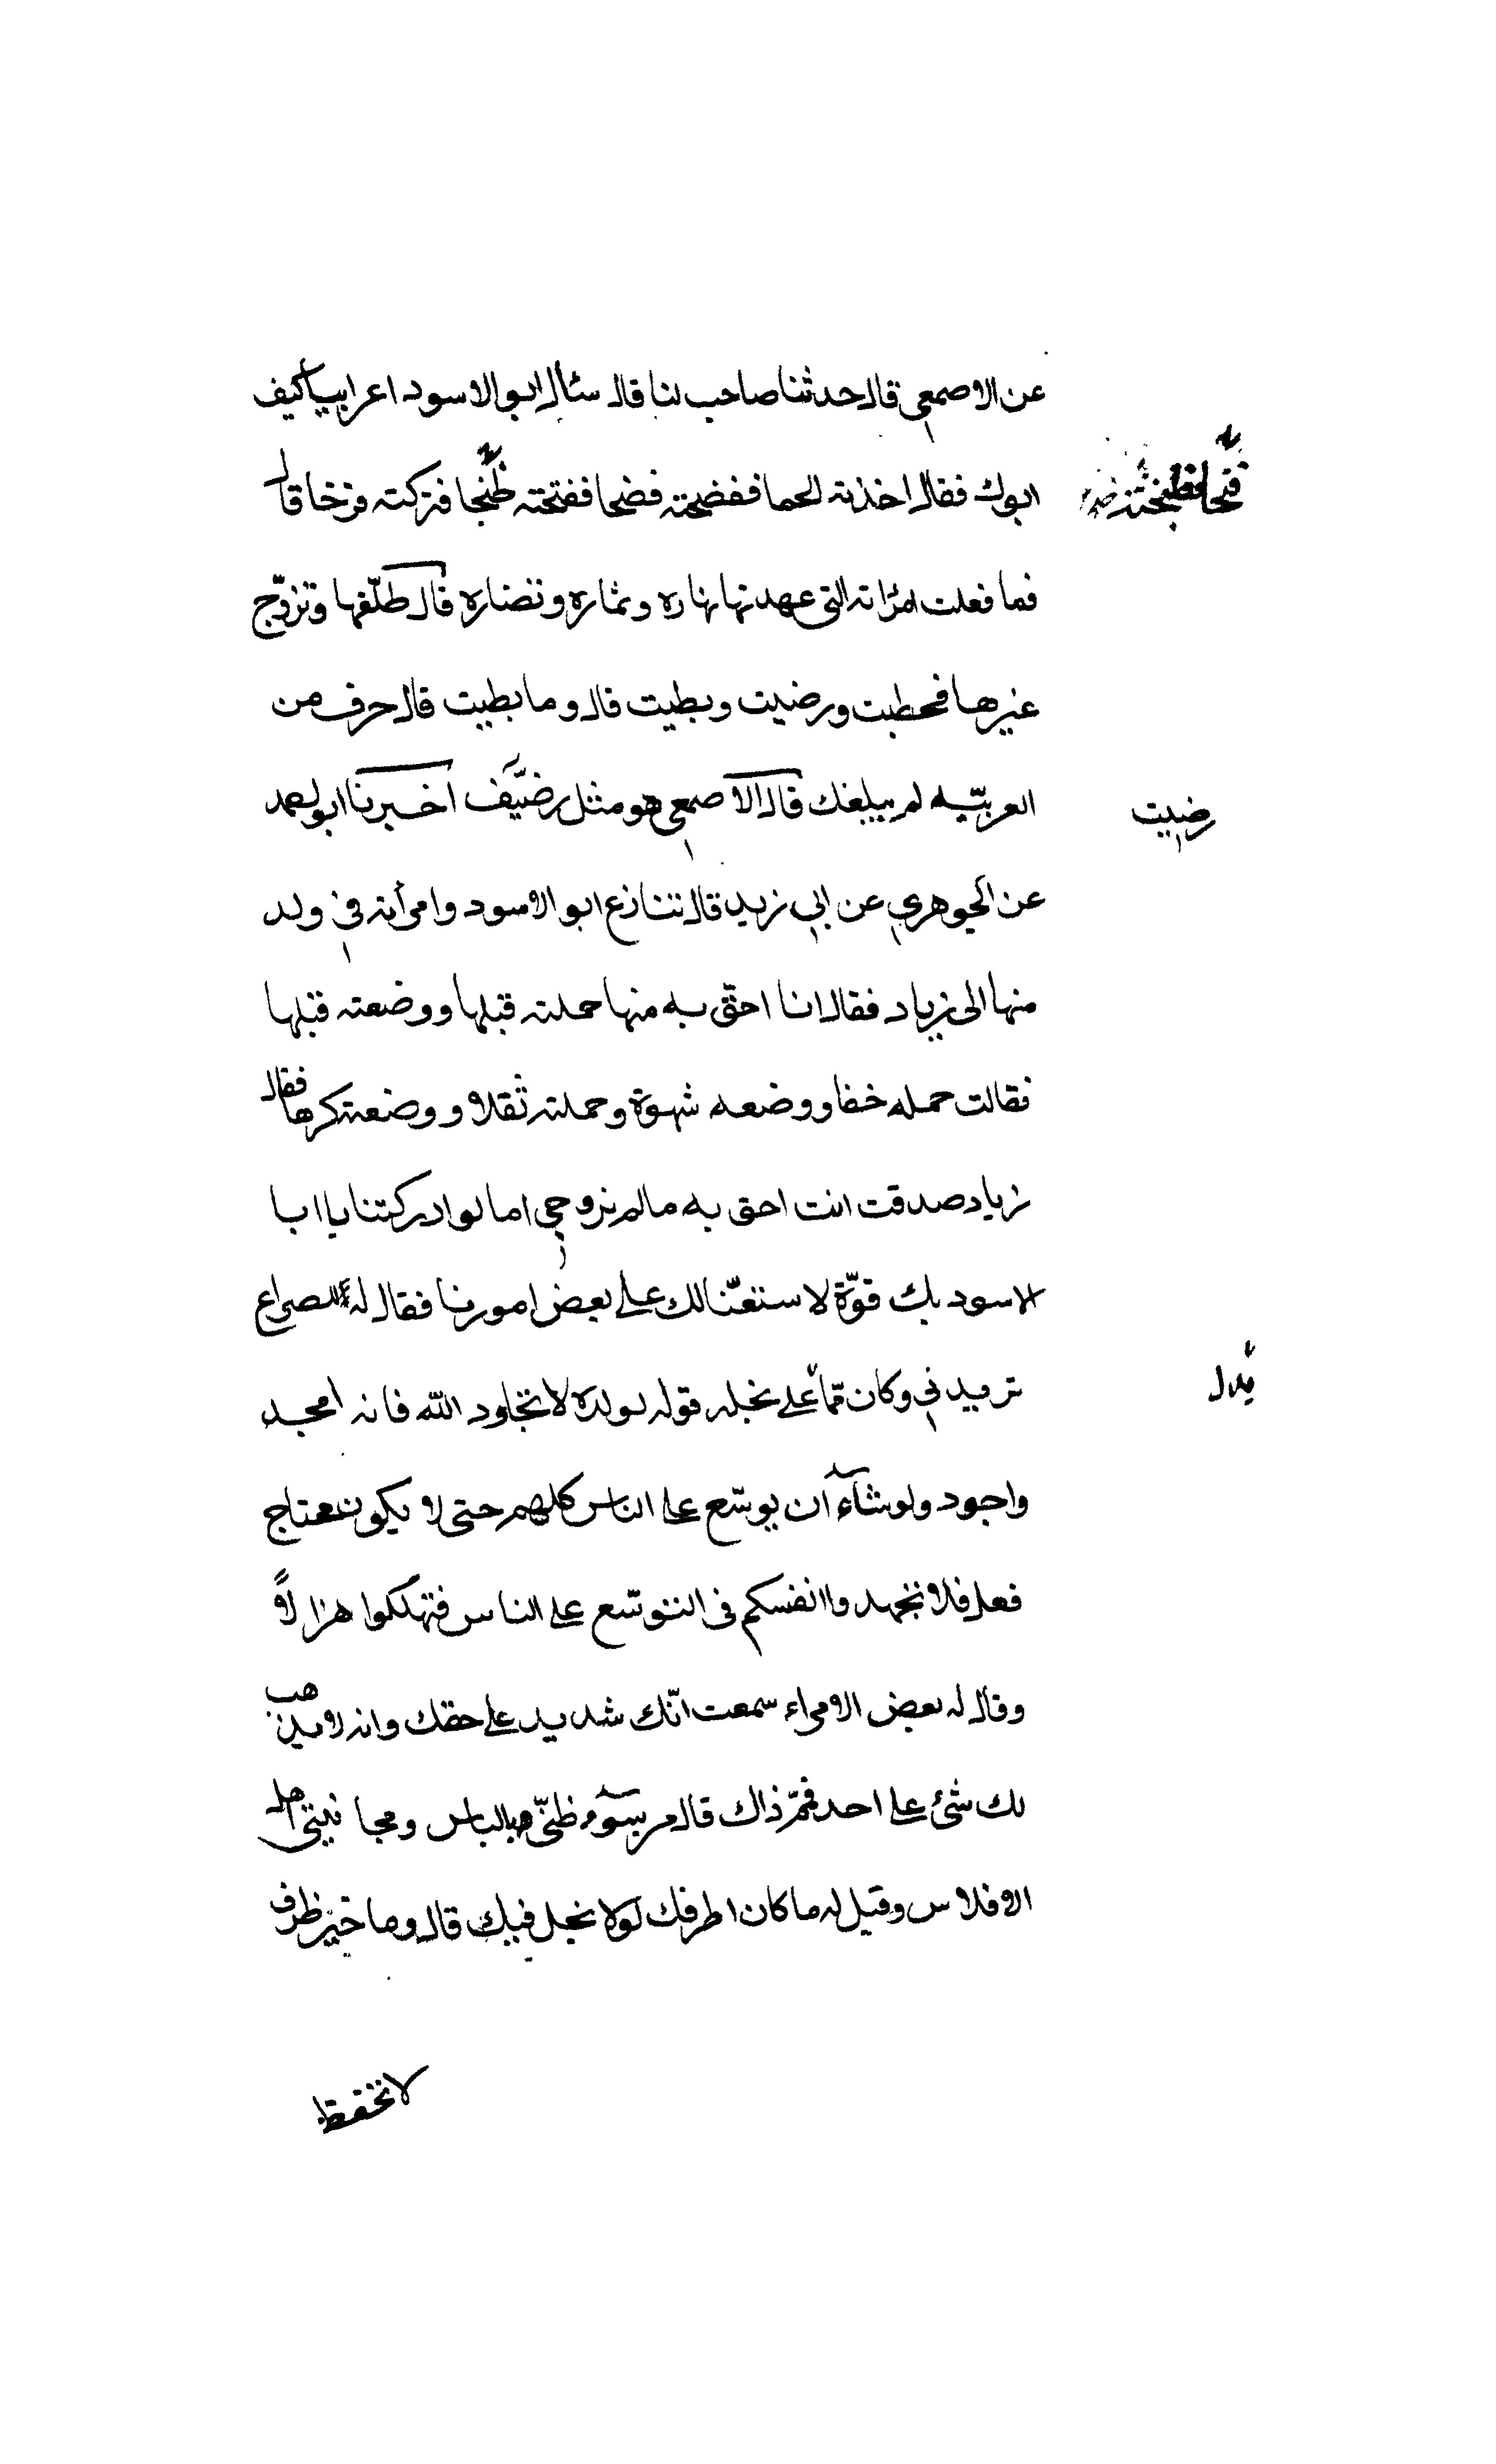 عن الاصمعي قال حدثنا صاحب لنا قال سئال ابو الاسود اعرابيا كيف
ابوك فقال اخذته الحما ففضخته فضخا ففتخته طبخا فتركته فرخا قال
فما فعلت امرٔاته التى عهدتها نهاره وتماره وتضاره قال طلّقها وتزوّج
غيرها فحظيت ورضيت وبظيت قال وما بظيت قال حرف من
العربيّه لم يبلغك قال الاصمعي هو مثل رضيّف اخبرنا ابو احمد
رضيت
عن الجوهري عن ابي زيد قال تنازع ابو الاسود وامرأته في ولد
منها الى زياد فقال انا احقّ به منها حملته قبلها ووضعته قبلها
فقالت حمله خفا ووضعه شهوة وحملته ثقلا و ووضعته كرها فقال
زياد صدقت انت احق به مالم تزوجي اما لو ادركتنا يا ابا
الاسود بك قوّة لاستعنّا لك على بعض امورنا فقال له للصراع
تريدني وكان ممّا على بخله قوله لولده لا تجاود الله فانه امجد
واجود ولو شآء ان يوسّع على الناس كلهم حتى لا يكون محتاج
فعل فلا تجهدوا انفسكم فى التوسّع على الناس فتهلكوا هزالاً
وقال له بعض الامراء سمعت انّك شديد على حقك وانه لا يذهب
لك شئ على احد فممّ ذاك قال من سوء ظنّي بالناس ومجانبتي اهل
الافلاس وقيل له ما كان اظرفك لولا بخل فيك قال وما خير ظرف
لا تحفظ